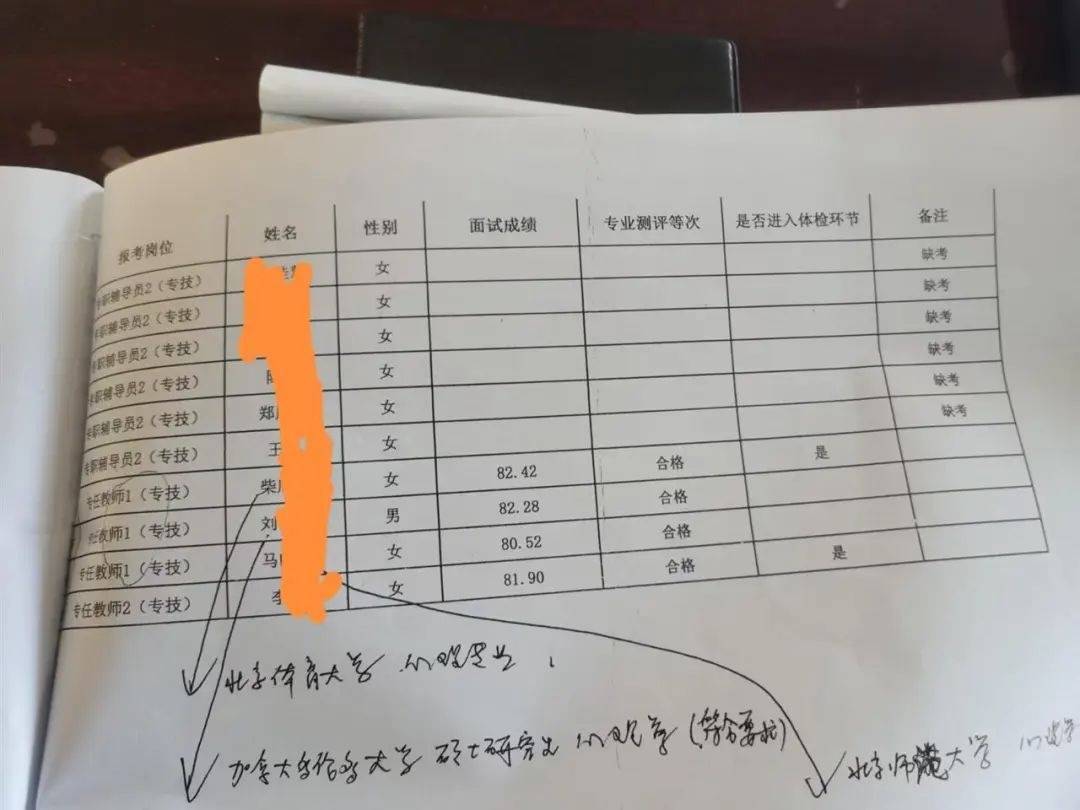 报考岗位 姓名 性别 面试成绩 专业测评等次 是否进入体检环节 备注
专职辅导员2（专技） 女 缺考
专职辅导员2（专技） 女 缺考
专职辅导员2（专技） 女 缺考
专职辅导员2（专技） 女 缺考
专职辅导员2（专技） 郑 女 缺考
专职辅导员2（专技） 王 女 缺考
专任教师1（专技） 柴 女 82.42 合格 是
任教师1（专技） 刘 男 82.28 合格
专任教师1（专技） 马 女 80.52 合格
专任教师2（专技） 李 女 81.90 合格 是
北京体育大学 心理专业
加拿大 大学 硕士研究生 心理学（符合要求）
北京师范大学 心理学